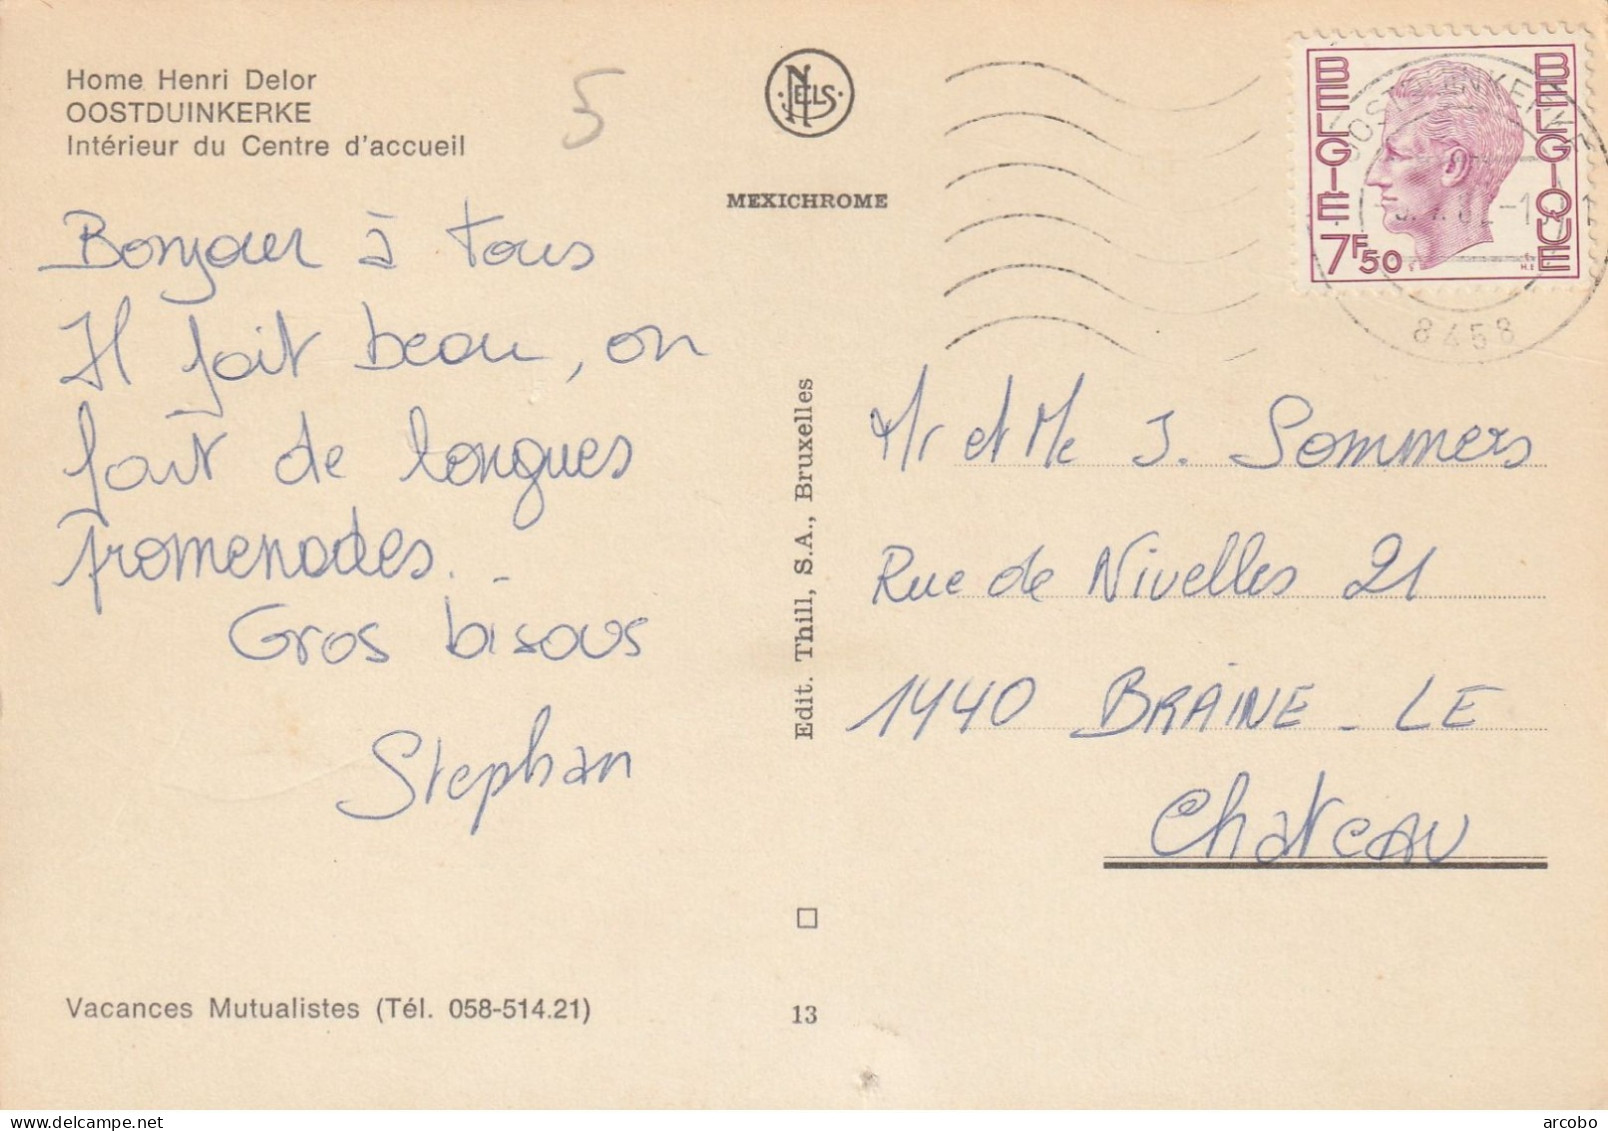 Home Henri Delor
OOSTDUINKERKE
Intérieur du Centre d'accueil
5
NELS
MEXICHROME
BELGIE
BELGIQUE
7F50
OOSTDUINKERKE
8458
Bonjour à tous
Il fait beau, on
fait de longues
promenades..
Gros bisous
Stephan
Edit. Thill, S.A., Bruxelles
Mr et Me J. Sommers
Rue de Nivelles 21
1440 BRAINE-LE
Chateau
Vacances Mutualistes (Tél. 058-514.21)
13
arcobo